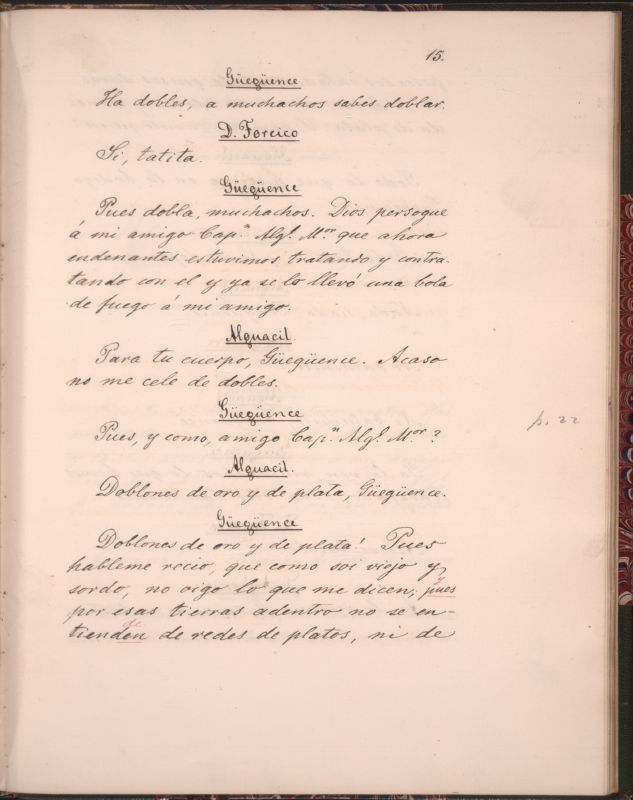 15.
Güegüence
Ha dobles, a muchachos sabes doblar.
D. Forcico
Si, tatita.
Güegüence
Pues dobla, muchachos. Dios persogue
á mi amigo Capn. Algl. Mor. que ahora
endenantes estuvimos tratando y contra-
tando con el y ya se lo llevó una bola
de fuego á mi amigo.
Alguacil.
Para tu cuerpo, Güegüence. Acaso
no me cele de dobles.
Güegüence
Pues, y como, amigo Capn. Algl. Mor?
p. 22
Alguacil.
Doblones de oro y de plata, Güegüence.
Güegüence
Doblones de oro y de plata! Pues
hableme recio, que como soi viejo y
sordo, no oigo lo que me dicen; pues
y
por esas tierras adentro no se en-
tienden de redes de platos, ni de
de